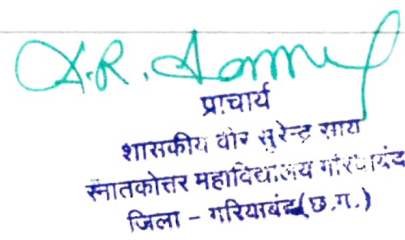 प्राचार्य
शासकीय वीर सुरेन्द्र साय
स्नातकोत्तर महाविद्यालय गरियाबंद
जिला - गरियाबंद(छ.ग.)